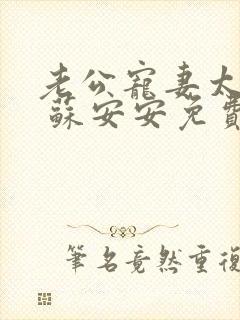 老公寵妻太
蘇安安免費
筆名竟然重復